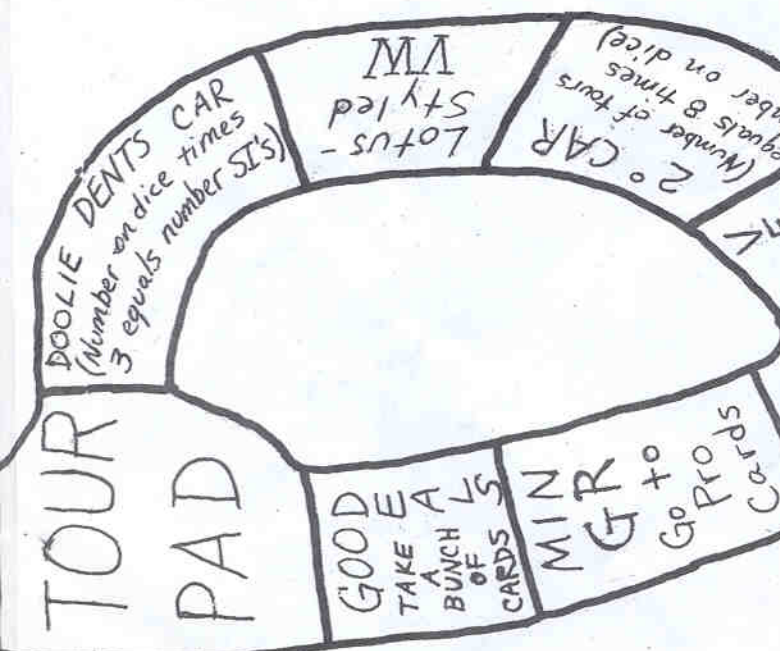 DOOLIE DENTS CAR
(Number on dice times
3 equals number SI's)
Lotus-
Styled
VW
2° CAR
(Number of tours
equals 8 times
on dice)
TOUR
PAD
GOOD
DEALS
TAKE
A
BUNCH
OF
CARDS
MIN
GR
Go to
Pro
Cards